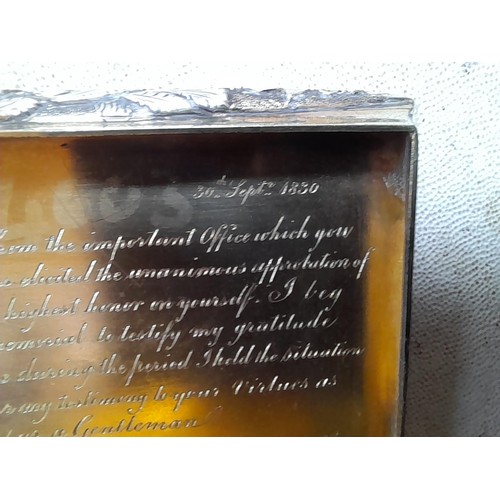 30th Septr. 1830
from the important Office which you
elicited the unanimous approbation of
highest honor on yourself. I beg
memorial to testify my gratitude
during the period I held the situation
any testimony to your Virtues as
a Gentleman